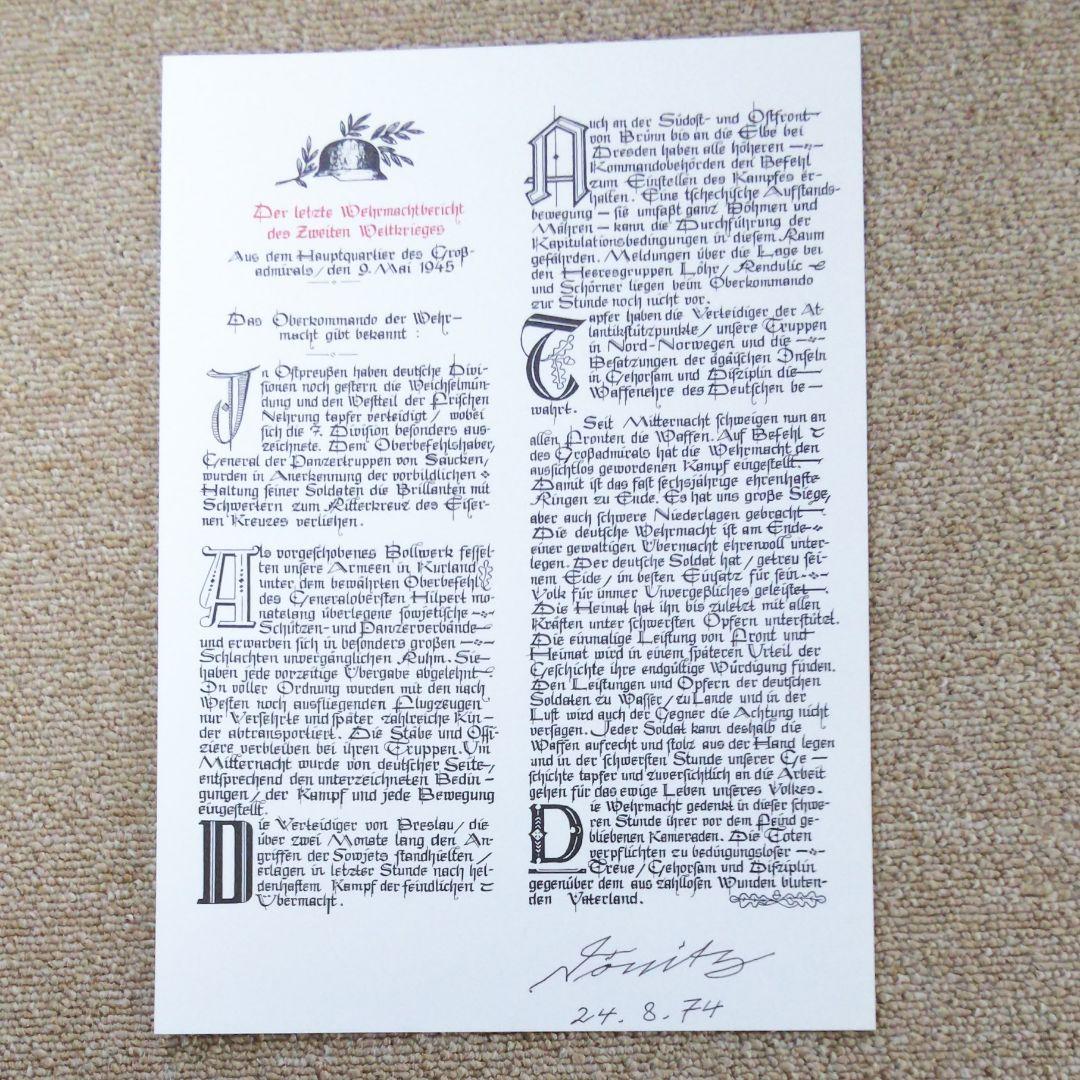 Der letzte Wehrmachtbericht
des Zweiten Weltkrieges
Aus dem Hauptquartier des Groß-
admirals/den 9. Mai 1945
Das Oberkommando der Wehr-
macht gibt bekannt :
In Ostpreußen haben deutsche Divi-
sionen noch gestern die Weichselmün-
dung und den Westteil der Frischen
Nehrung tapfer verteidigt/ wobei
sich die 7. Division besonders aus-
zeichnete. Dem Oberbefehlshaber,
General der Panzertruppen von Saucken,
wurden in Anerkennung der vorbildlichen
Haltung seiner Soldaten die Brillanten mit
Schwertern zum Ritterkreuz des Eiser-
nen Kreuzes verliehen.
Als vorgeschobenes Bollwerk fessel-
ten unsere Armeen in Kurland
unter dem bewährten Oberbefehl
des Generalobersten Hilpert mo-
natelang überlegene sowjetische
Schützen- und Panzerverbände
und erwarben sich in besonders großen
Schlachten unvergänglichen Ruhm. Sie
haben jede vorzeitige Übergabe abgelehnt.
In voller Ordnung wurden mit den nach
Westen noch ausfliegenden Flugzeugen
nur Versehrte und später zahlreiche Kin-
der abtransportiert. Die Stäbe und Offi-
ziere verbleiben bei ihren Truppen. Um
Mitternacht wurde von deutscher Seite/
entsprechend den unterzeichneten Bedin-
gungen/ der Kampf und jede Bewegung
eingestellt.
Die Verteidiger von Breslau/ die
über zwei Monate lang den An-
griffen der Sowjets standhielten/
erlagen in letzter Stunde nach hel-
denhaftem Kampf der feindlichen
Übermacht.
Auch an der Südost- und Ostfront
von Brünn bis an die Elbe bei
Dresden haben alle höheren
Kommandobehörden den Befehl
zum Einstellen des Kampfes er-
halten. Eine tschechische Aufstands-
bewegung – sie umfaßt ganz Böhmen und
Mähren – kann die Durchführung der
Kapitulationsbedingungen in diesem Raum
gefährden. Meldungen über die Lage bei
den Heeresgruppen Löhr/ Rendulic
und Schörner liegen beim Oberkommando
zur Stunde noch nicht vor.
Tapfer haben die Verteidiger der At-
lantikstützpunkte/ unsere Truppen
in Nord-Norwegen und die
Besatzungen der ägäischen Inseln
in Gehorsam und Disziplin die
Waffenehre des Deutschen be-
wahrt.
Seit Mitternacht schweigen nun an
allen Fronten die Waffen. Auf Befehl
des Großadmirals hat die Wehrmacht den
aussichtlos gewordenen Kampf eingestellt.
Damit ist das fast sechsjährige ehrenhafte
Ringen zu Ende. Es hat uns große Siege,
aber auch schwere Niederlagen gebracht
Die deutsche Wehrmacht ist am Ende
einer gewaltigen Übermacht ehrenvoll unter-
legen. Der deutsche Soldat hat/ getreu sei-
nem Eide/ im besten Einsatz für sein
Volk für immer Unvergeßliches geleistet.
Die Heimat hat ihn bis zuletzt mit allen
Kräften unter schwersten Opfern unterstützt.
Die einmalige Leistung von Front und
Heimat wird in einem späteren Urteil der
Geschichte ihre endgültige Würdigung finden.
Den Leistungen und Opfern der deutschen
Soldaten zu Wasser/ zu Lande und in der
Luft wird auch der Gegner die Achtung nicht
versagen. Jeder Soldat kann deshalb die
Waffen aufrecht und stolz aus der Hand legen
und in der schwersten Stunde unserer Ge-
schichte tapfer und zuversichtlich an die Arbeit
gehen für das ewige Leben unseres Volkes.
Die Wehrmacht gedenkt in dieser schwe-
ren Stunde ihrer vor dem Feind ge-
bliebenen Kameraden. Die Toten
verpflichten zu bedingungsloser
Treue/ Gehorsam und Disziplin
gegenüber dem aus zahllosen Wunden bluten-
den Vaterland.
Dönitz
24. 8. 74